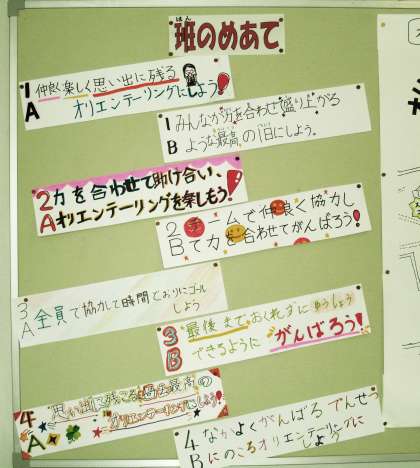 はん
班のめあて
1A 仲良く楽しく思い出に残る
オリエンテーリングにしよう!
1B みんなが力を合わせ盛り上がる
ような最高の1日にしよう。
2A 力を合わせて助け合い、
オリエンテーリングを楽しもう!
2B チームで仲良く協力し
て力を合わせてがんばろう!
3A 全員で協力して時間どおりにゴール
しよう
3B 最後までおくれずに
できるように がんばろう!
4A 思い出に残る 最高の
オリエンテーリングにしよう!
4B なかよくがんばる でんせつ
にのこるオリエンテーリングに
しよう